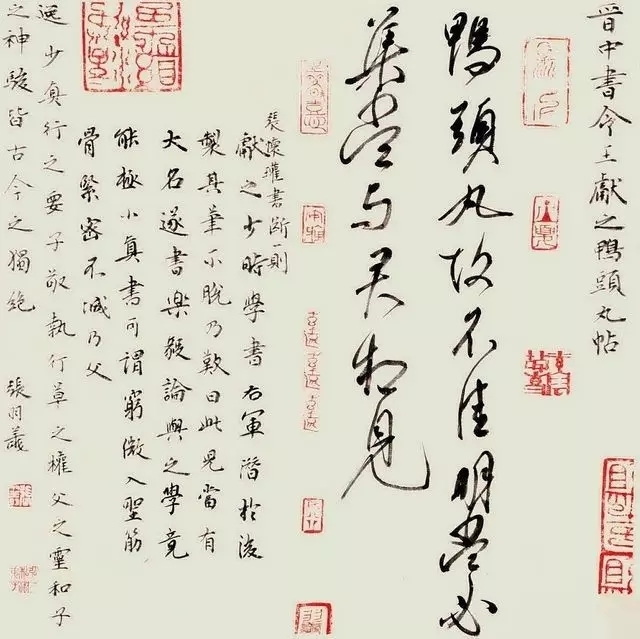 晉中書令王獻之鴨頭丸帖
鴨頭丸故不佳明當必
集當與君相見
懷瓘書斷一則
獻之少時學書右軍潛於後
製其筆不脫乃歎曰此兒當有
大名遂書樂毅論與之學竟
能極小真書可謂窮微入聖筋
骨緊密不減乃父
逸少真行之要子敬執行草之權父之靈和子
之神駿皆古今之獨絕
張羽